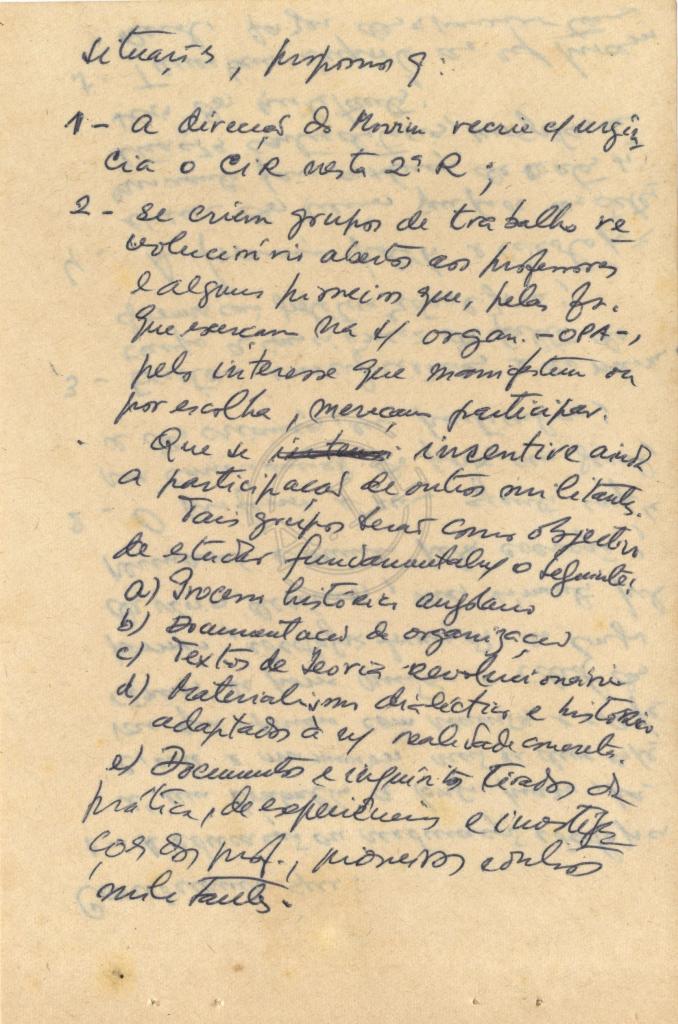 situação, propomos q:
1 - a direcção do Movim recrie c/ urgên
cia o CIR nesta 2ª R;
2 - se criem grupos de trabalho re-
volucionário abertos aos professores
e alguns pioneiros que, pelas fs.
que exerçam na s/ organ. - OPA -,
pelo interesse que manifestem ou
por escolha, mereçam participar.
Que se incentive ainda
a participação de outros militantes.
Tais grupos terão como objectivo
de estudar fundamentalm/ o seguinte:
a) Processo histórico angolano
b) Documentação da organização
c) Textos de Teoria revolucionária
d) Materialismo dialéctico e histórico
adaptados à n/ realidade concreta.
e) Documentos e inquéritos tirados da
prática, de experiências e investiga
ções dos prof., pioneiros e outros
militantes.